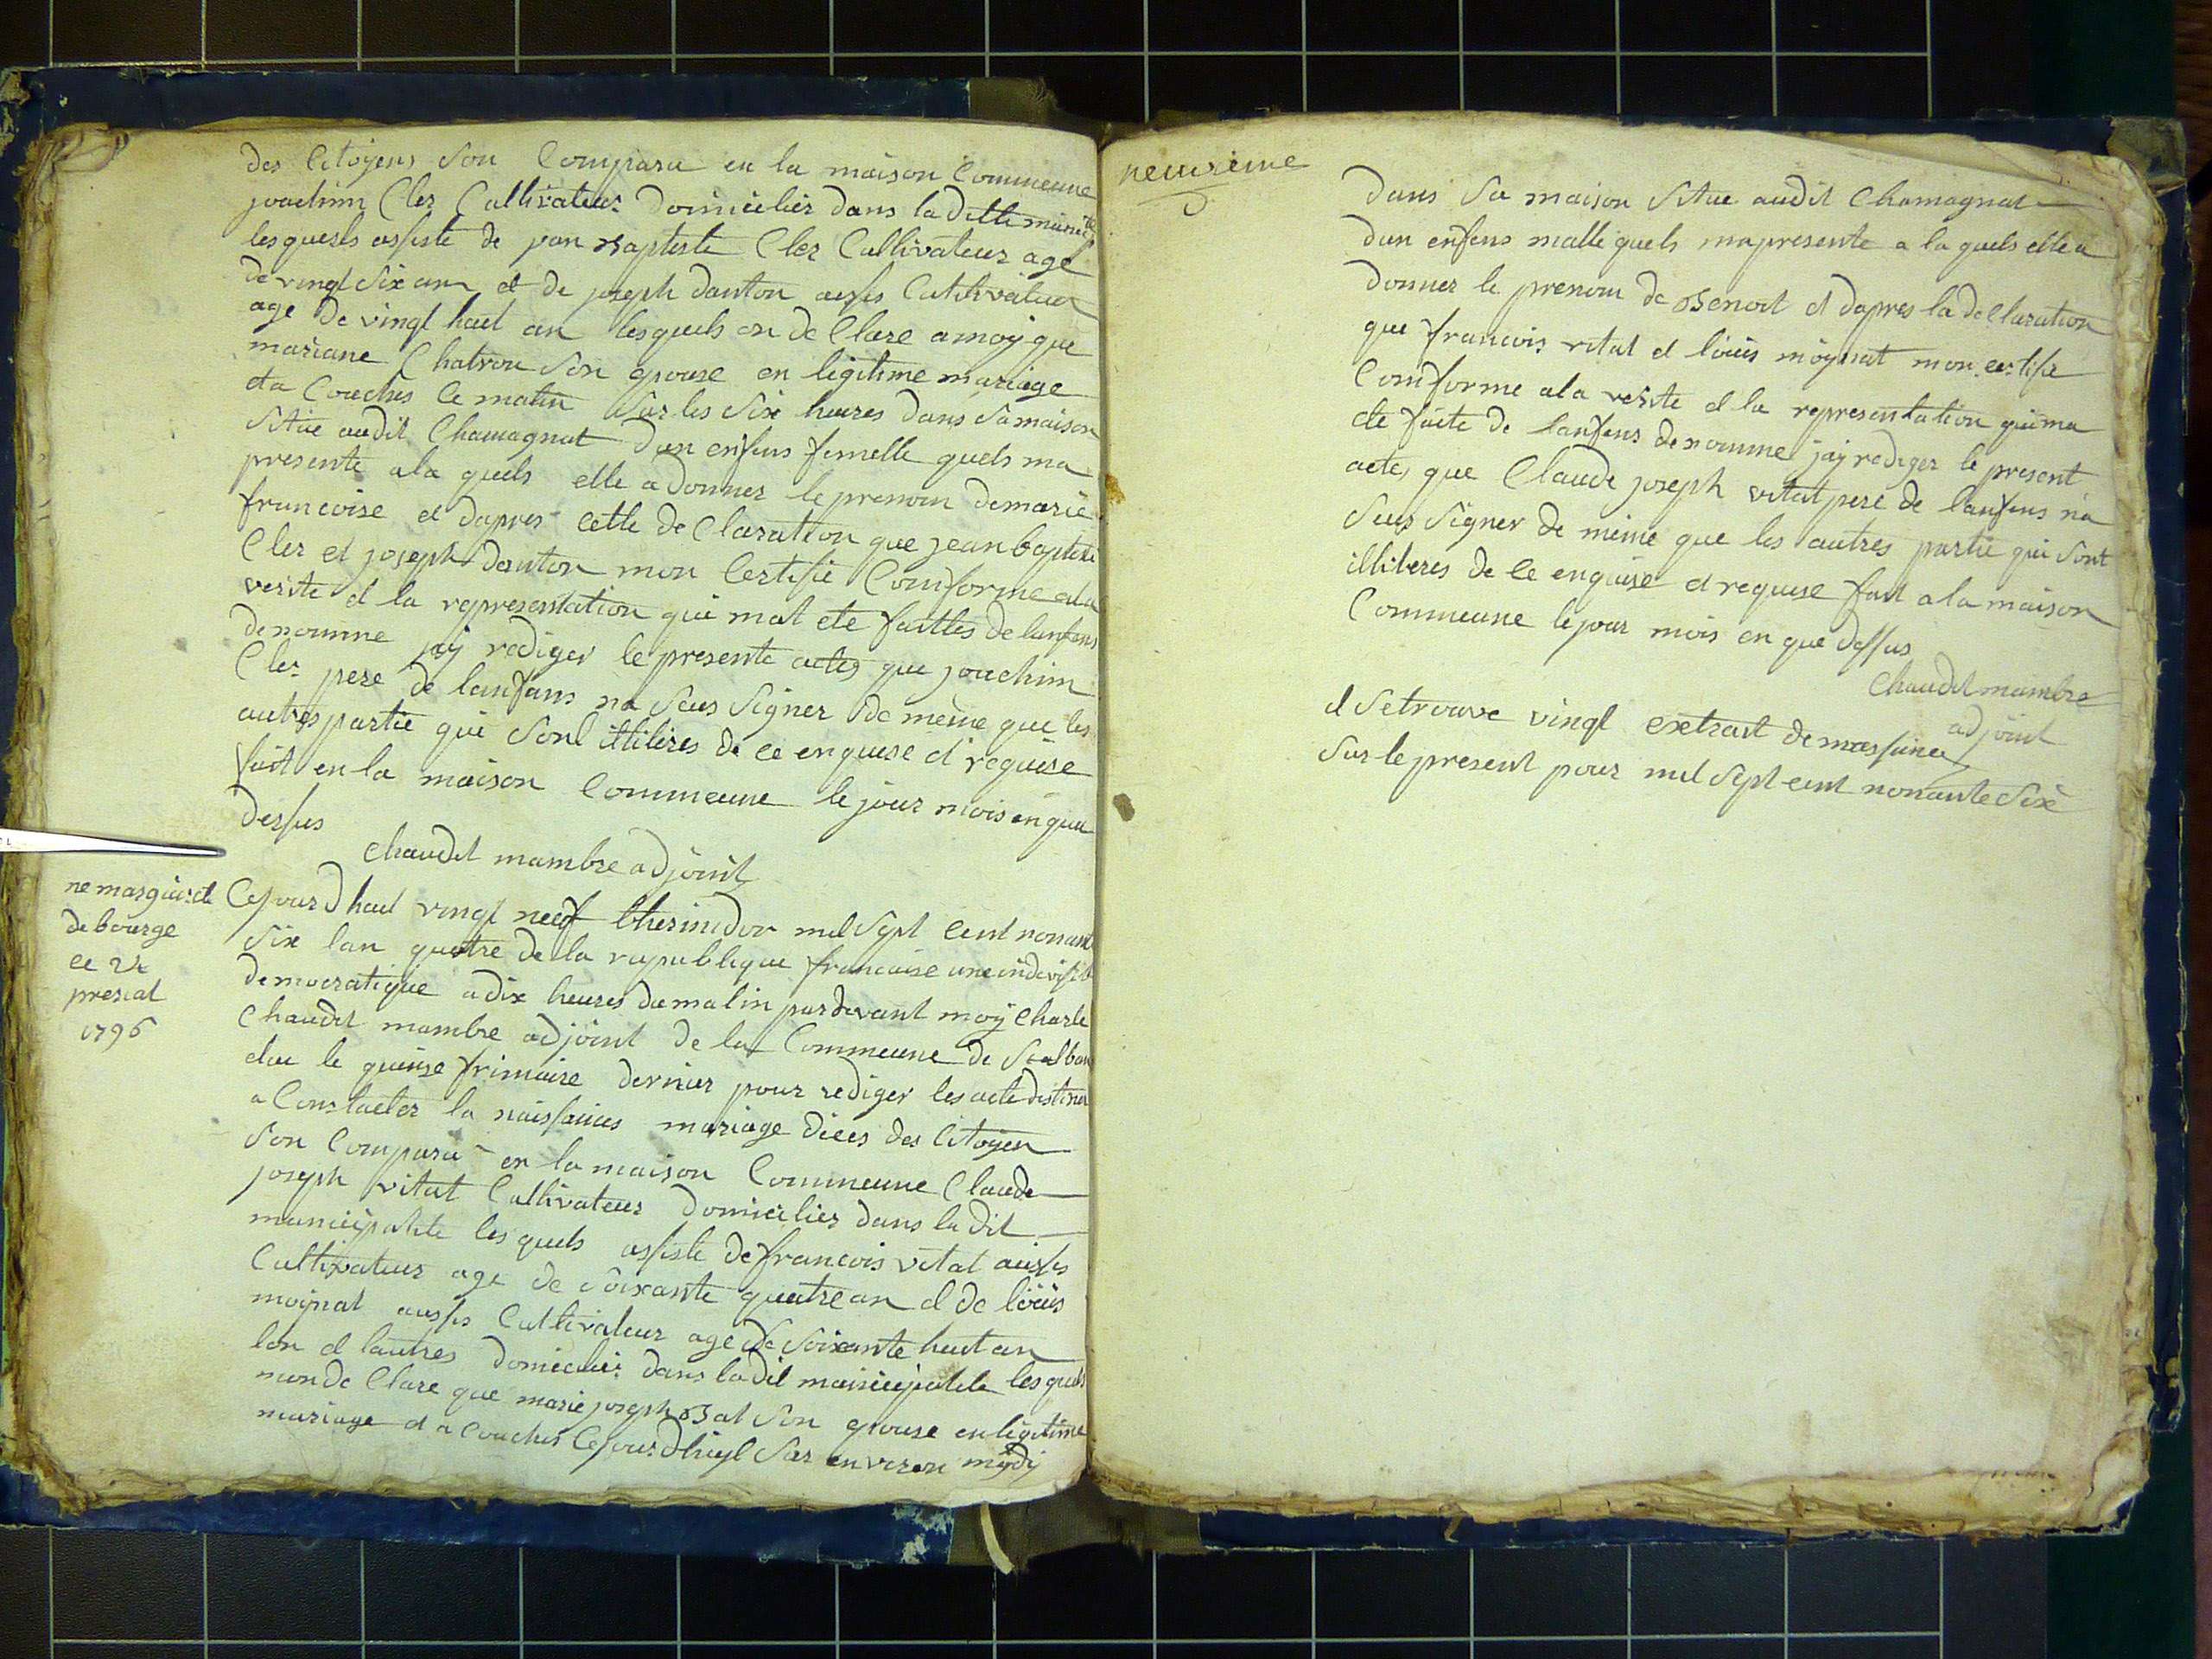 des Citoyens son Comparu en la maison Commeune
joachim Cler Cultivateur domicilier dans la ditte
lesquesls assiste de jean Baptiste Cler Cultivateur age
de vingt six an et de joseph danton aussis Cultivateur
age de vingt huit an lesquels on de Clare a moy que
mariane Chatron son epouse en legitime mariage
eta Coucher le matin sur les six heures dans sa maison
situe audit Chamagnat dun enfens femelle quels ma
presente ala quels elle a donner le prenom de marie
francoise et dapres cette de Claration que jean baptiste
Cler et joseph danton mon Certifie Comforme ala
verite et la representation qui mat ete faittes de lanfans
denomme jay rediger le presente actes que joachim
Cler pere de lanfans na seus signer de meme que les
autres partie qui sont illiteres de ce enquise et requise
fait en la maison Commeune le jour mois en que
dessus
Chaudet mambre adjoint
ne marguiet
de bourge
ce 24
prerial
1796
Cejourdhuit vingt neuf thermidor mil sept Cent nonant
six lan quatre de la republique francaise une indivisib
democratique a dix heures du matin pardevant moy Charle
Chaudet mambre adjoint de la Commeune de St alban
elue le quinze frimaire dernier pour rediger les acte destiner
a Constacter la naissances mariage dices des Citoyen
son Comparu en la maison Commeune Claude
joseph vitat Cultivateur domicilier dans la dit
municipalite lesquels assiste de francois vitat aussis
Cultivateur age de soixante quatre an et de louis
moynat aussis Cultivateur age de soixante huit an
lon et lautres domicilier dans la dit municipalite lesquels
mon de Clare que marie joseph Bat son epouse en legitime
mariage et a Coucher Cejourdhuyt sur environ mydy
neuvieme
dans sa maison situe audit Chamagnat
dun enfens malle quels ma presente a la quels elle a
donner le prenom de Benoit et dapres la de Claration
que francois vitat et louis moynat mon certifie
Comforme ala verite et la representation qui ma
ete faite de lanfens denomme jay rediger le present
actes que Claude joseph vitat pere de lanfens na
seus signer de meme que les autres partie qui sont
illiteres de ce enquise et requise fait a la maison
Commeune le jour mois en que dessus
Chaudet mambre
adjoint
il se trouve vingt extrait de naissance
sur le present pour mil sept cent nonante six